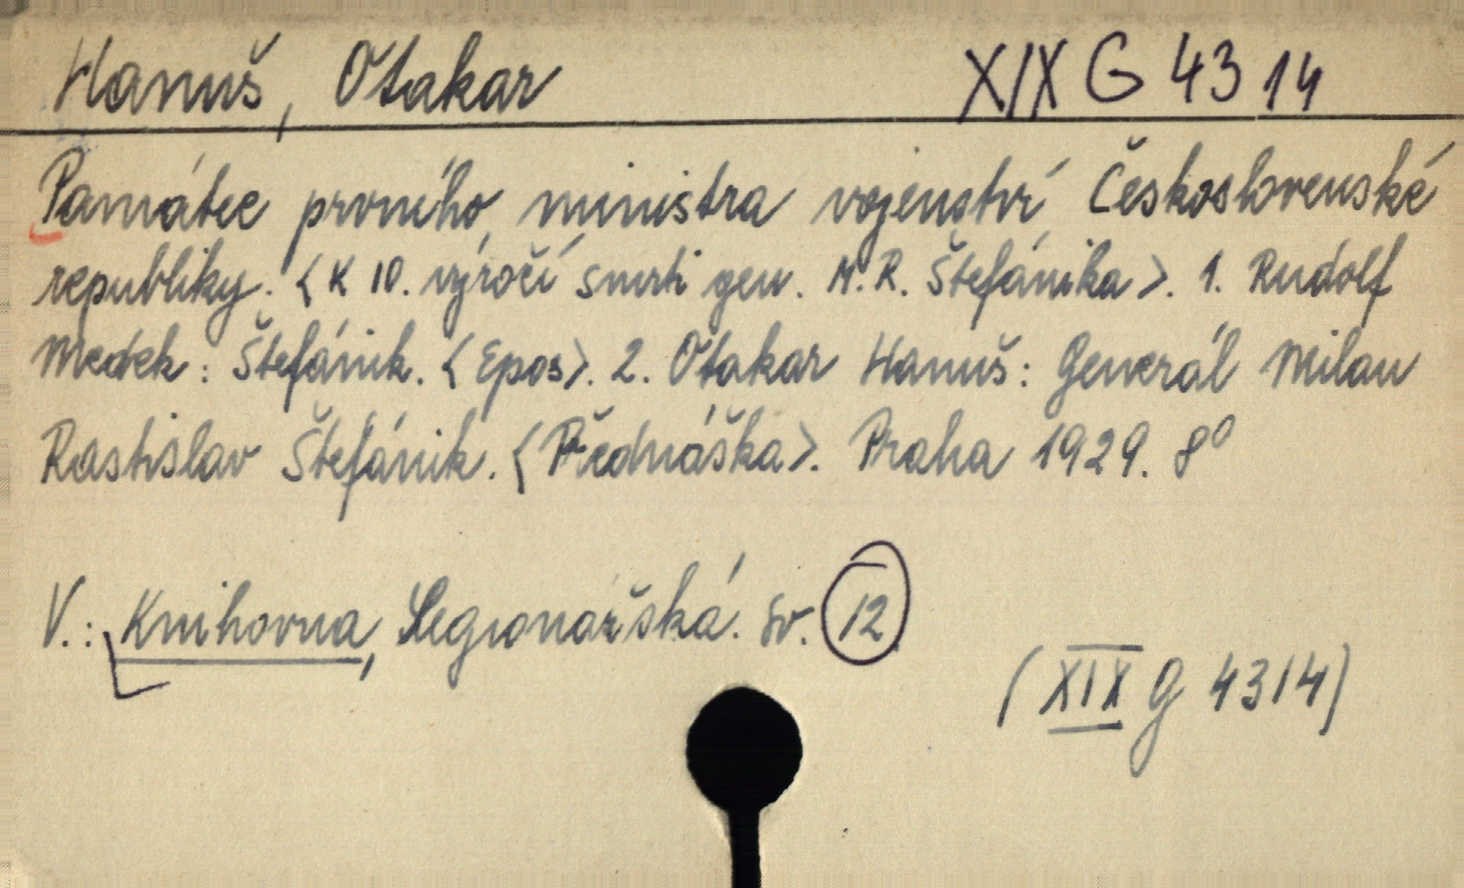 Hanuš, Otakar XIX G 4314
Památce prvního ministra vojenství Československé
republiky. <K 10. výročí smrti gen. M. R. Štefánika>. 1. Rudolf
Medek: Štefánik. <Epos>. 2. Otakar Hanuš: Generál Milan
Rastislav Štefánik. <Přednáška>. Praha 1929. 8°
V.: Knihovna, Legionářská. Sv. 12
(XIX G 4314)